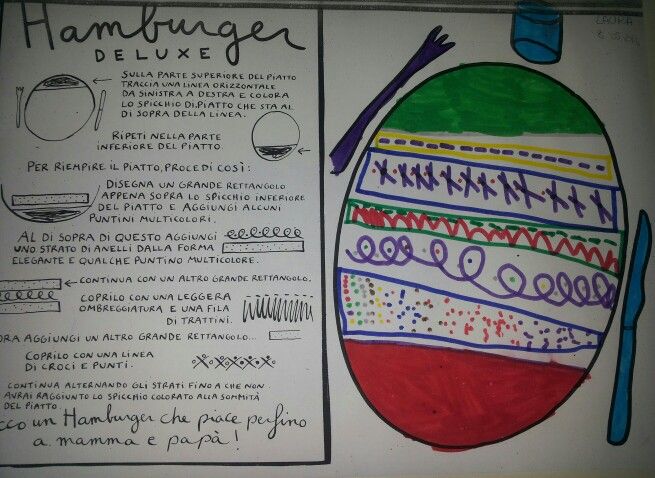 Hamburger
DELUXE
SULLA PARTE SUPERIORE DEL PIATTO
TRACCIA UNA LINEA ORIZZONTALE
DA SINISTRA A DESTRA E COLORA
LO SPICCHIO DI PIATTO CHE STA AL
DI SOPRA DELLA LINEA.
RIPETI NELLA PARTE
INFERIORE DEL PIATTO.
PER RIEMPIRE IL PIATTO, PROCEDI COSÌ:
DISEGNA UN GRANDE RETTANGOLO
APPENA SOPRA LO SPICCHIO INFERIORE
DEL PIATTO E AGGIUNGI ALCUNI
PUNTINI MULTICOLORI.
AL DI SOPRA DI QUESTO AGGIUNGI
UNO STRATO DI ANELLI DALLA FORMA
ELEGANTE E QUALCHE PUNTINO MULTICOLORE.
CONTINUA CON UN ALTRO GRANDE RETTANGOLO.
COPRILO CON UNA LEGGERA
OMBREGGIATURA E UNA FILA
DI TRATTINI.
ORA AGGIUNGI UN ALTRO GRANDE RETTANGOLO...
COPRILO CON UNA LINEA
DI CROCI E PUNTI.
CONTINUA ALTERNANDO GLI STRATI FINO A CHE NON
AVRAI RAGGIUNTO LO SPICCHIO COLORATO ALLA SOMMITÀ
DEL PIATTO
cco un Hamburger che piace perfino
a mamma e papà!
LAURA